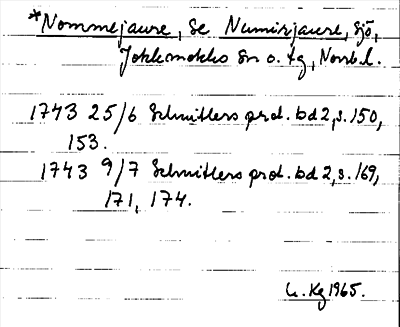 *Nommejaure, se Numirjaure, sjö,
Jokkmokks sn o. tg, Norrb. l.
1743 25/6 Schnitlers prot. bd 2, s. 150,
153.
1743 9/7 Schnitlers prot. bd 2, s. 169,
171, 174.
Kg 1965.